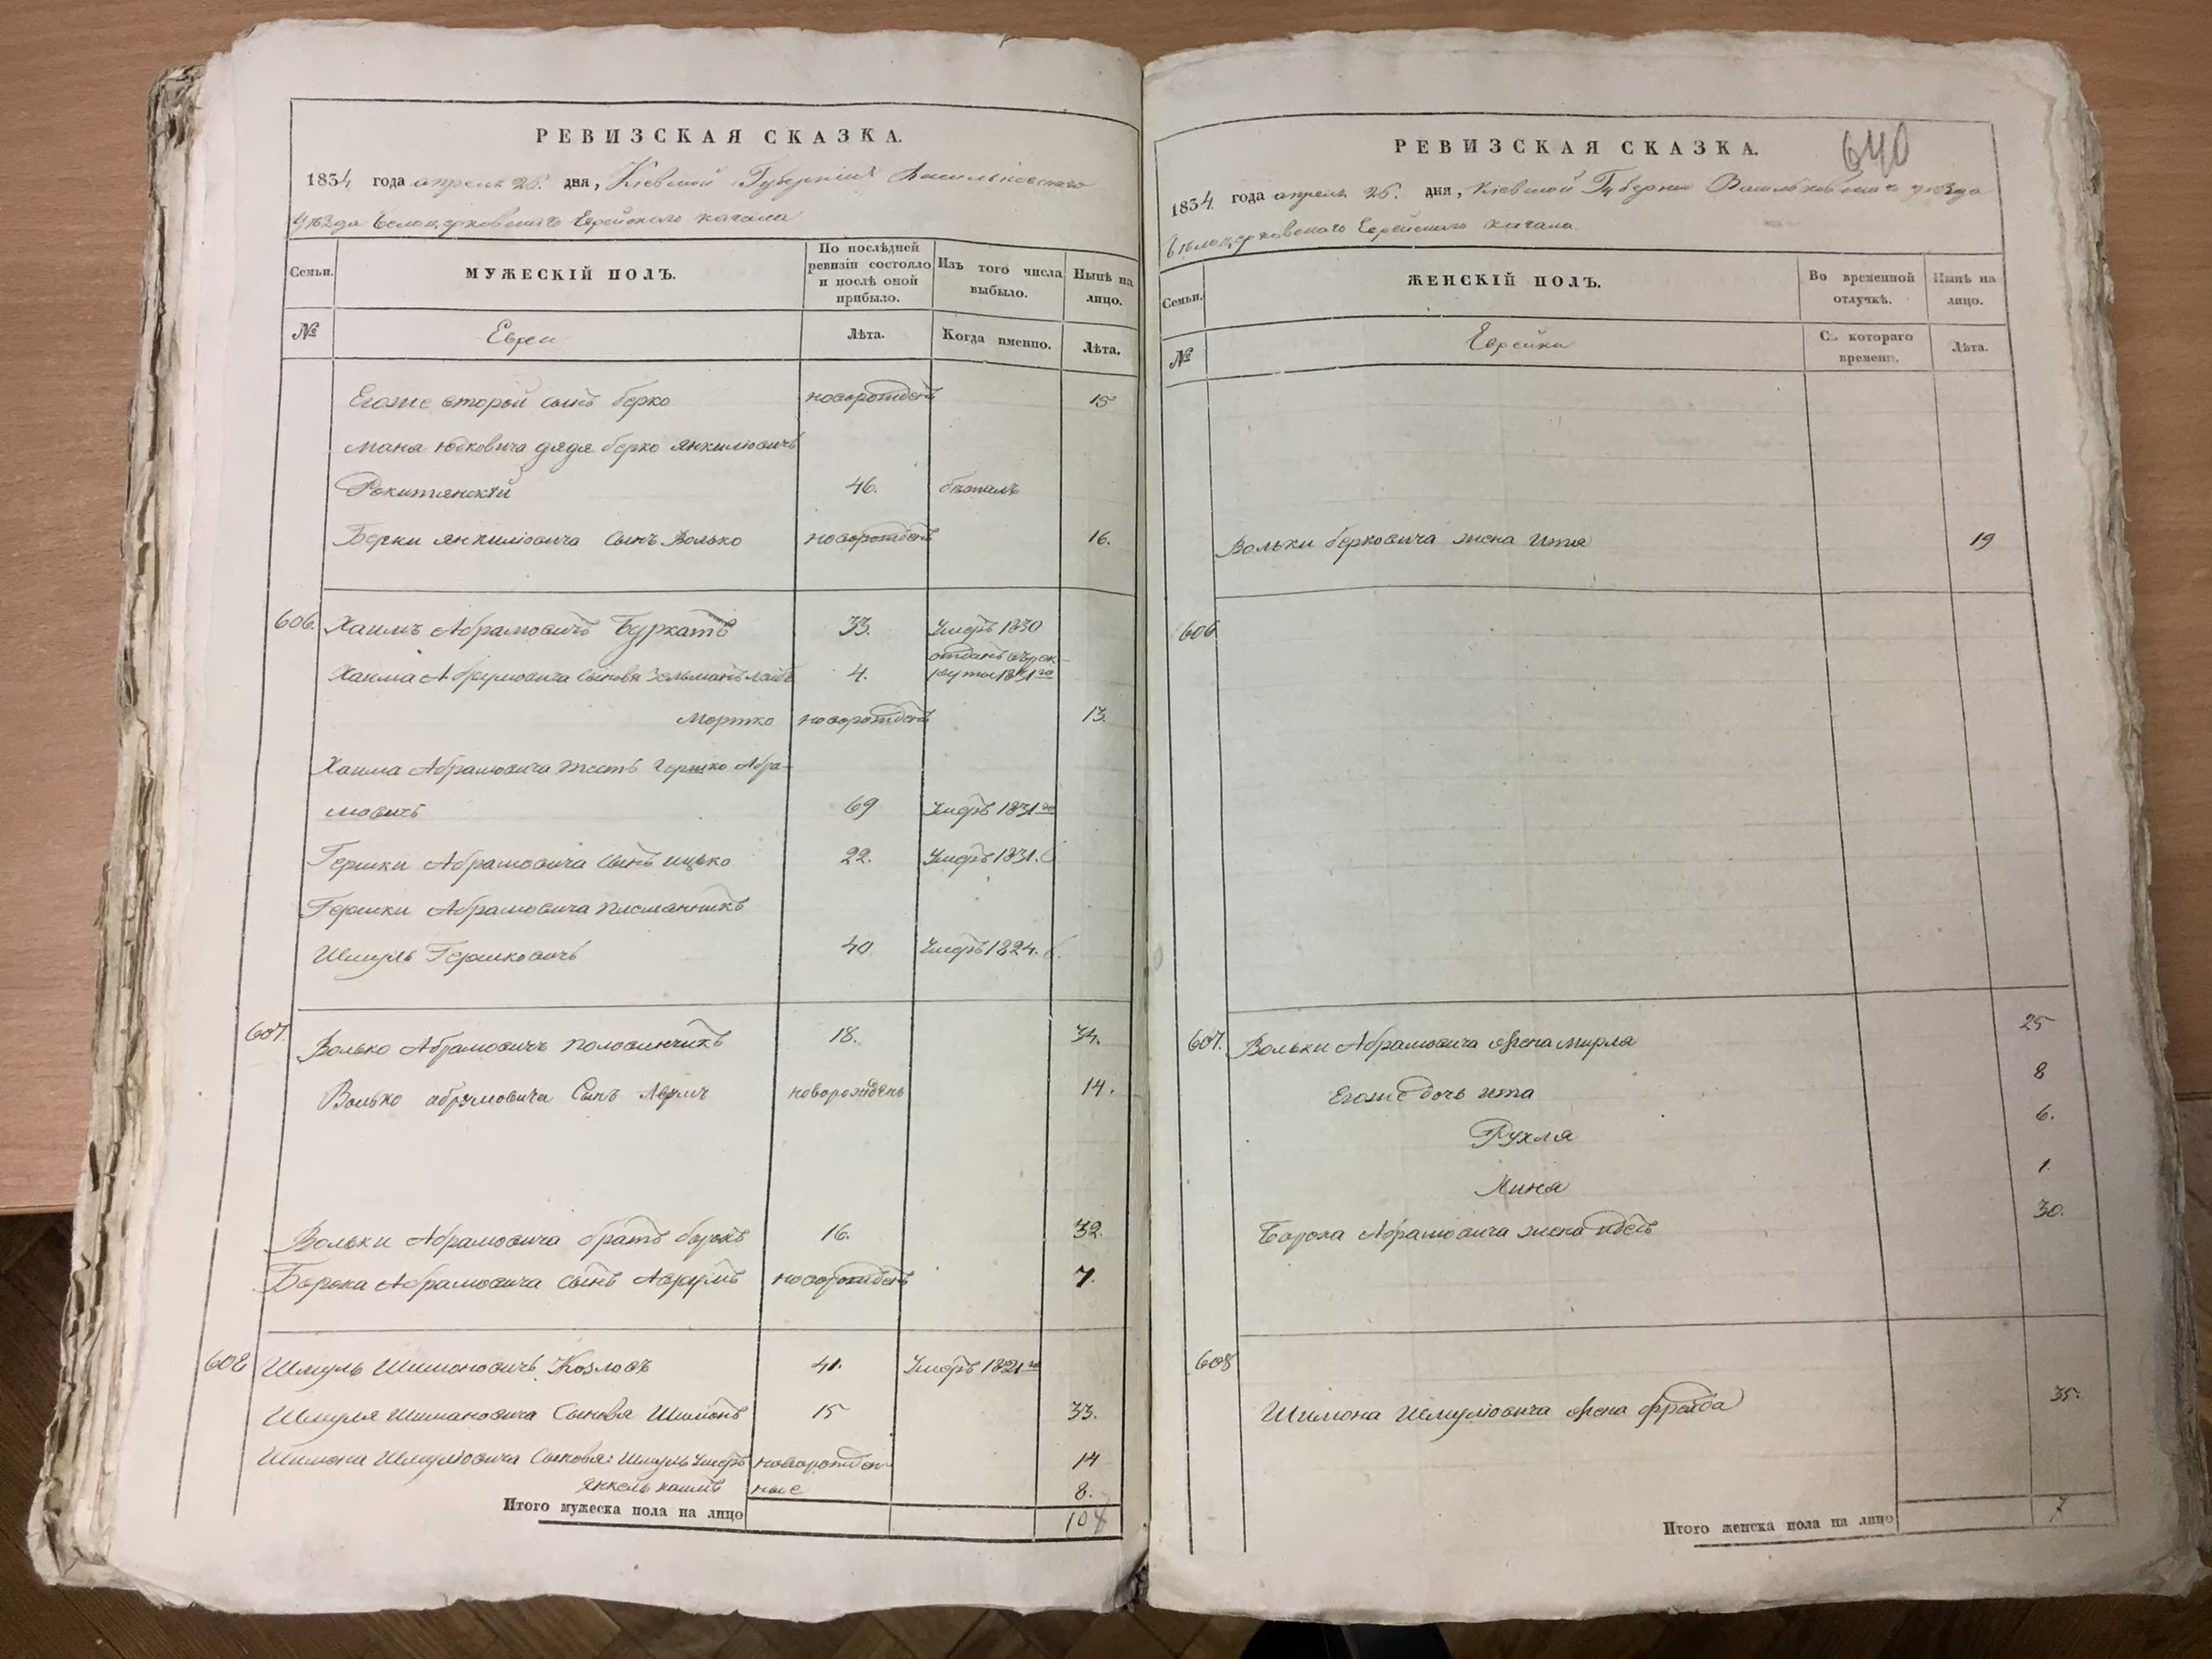 РЕВИЗСКАЯ СКАЗКА.
1834 года апреля 25. дня, Кіевской Губерніи Васильковскаго
уѣзда Белоцерковскаго Еврейскаго кагала
Семьи. МУЖЕСКІЙ ПОЛЪ. По послѣдней ревизіи состояло и послѣ оной прибыло. Изъ того числа выбыло. Нынѣ на лицо.
№ Евреи Лѣта. Когда именно. Лѣта.
Егоже второй сынъ берко новорожденъ 15
Мана юдковича дядя берко янкиліовичъ
Рокитянскій 46. бѣжалъ
Берки янкиліовича сынъ Волько новорожденъ 16.
606. Хаимъ Абрамовичъ Буркатъ 33. Умеръ 1830
Хаима Абрумовича сыновя Зельманъ лейбъ 4. отданъ въ рек-
руты 1831го
Мортко новорожденъ 13.
Хаима Абрамовича тесть Гершко Абра-
мовичъ 69 Умеръ 1831го
Гершки Абрамовича сынъ ицько 22. Умеръ 1831.
Гершки Абрамовича племянникъ
Шмуль Гершковичъ 40 Умеръ 1824.
607. Волько Абрамовичъ половинчикъ 18. 34.
Волько абрумовича Сынъ новорожденъ 14.
Вольки Абрамовича братъ борохъ 16. 32.
Бороха Абрамовича сынъ Аврумъ новорожденъ 7.
608 Шмуль Шимоновичъ Козловъ 41. Умеръ 1821го
Шмуля Шимановича Сыновя Шимонъ 15 33.
Шимона Шмуліовича Сыновя: Шмуль новорожден- 14
янкель хаимъ ные 8.
Итого мужеска пола на лицо 10
РЕВИЗСКАЯ СКАЗКА. 640
1834 года апреля 25. дня, Кіевской Губерніи Васильковскаго уѣзда
Бѣлоцерковскаго Еврейскаго кагала
Семьи. ЖЕНСКІЙ ПОЛЪ. Во временной отлучкѣ. Нынѣ на лицо.
№ Еврейки Съ котораго времени. Лѣта.
Вольки берковича жена итя 19
606
607. Вольки Абрамовича жена мирля 25
Егоже дочь ита 8
Рухля 6.
1.
Бороха Абрамовича жена 30.
608
Шимона Шмуліовича жена фрейда 35.
Итого женска пола на лицо 7